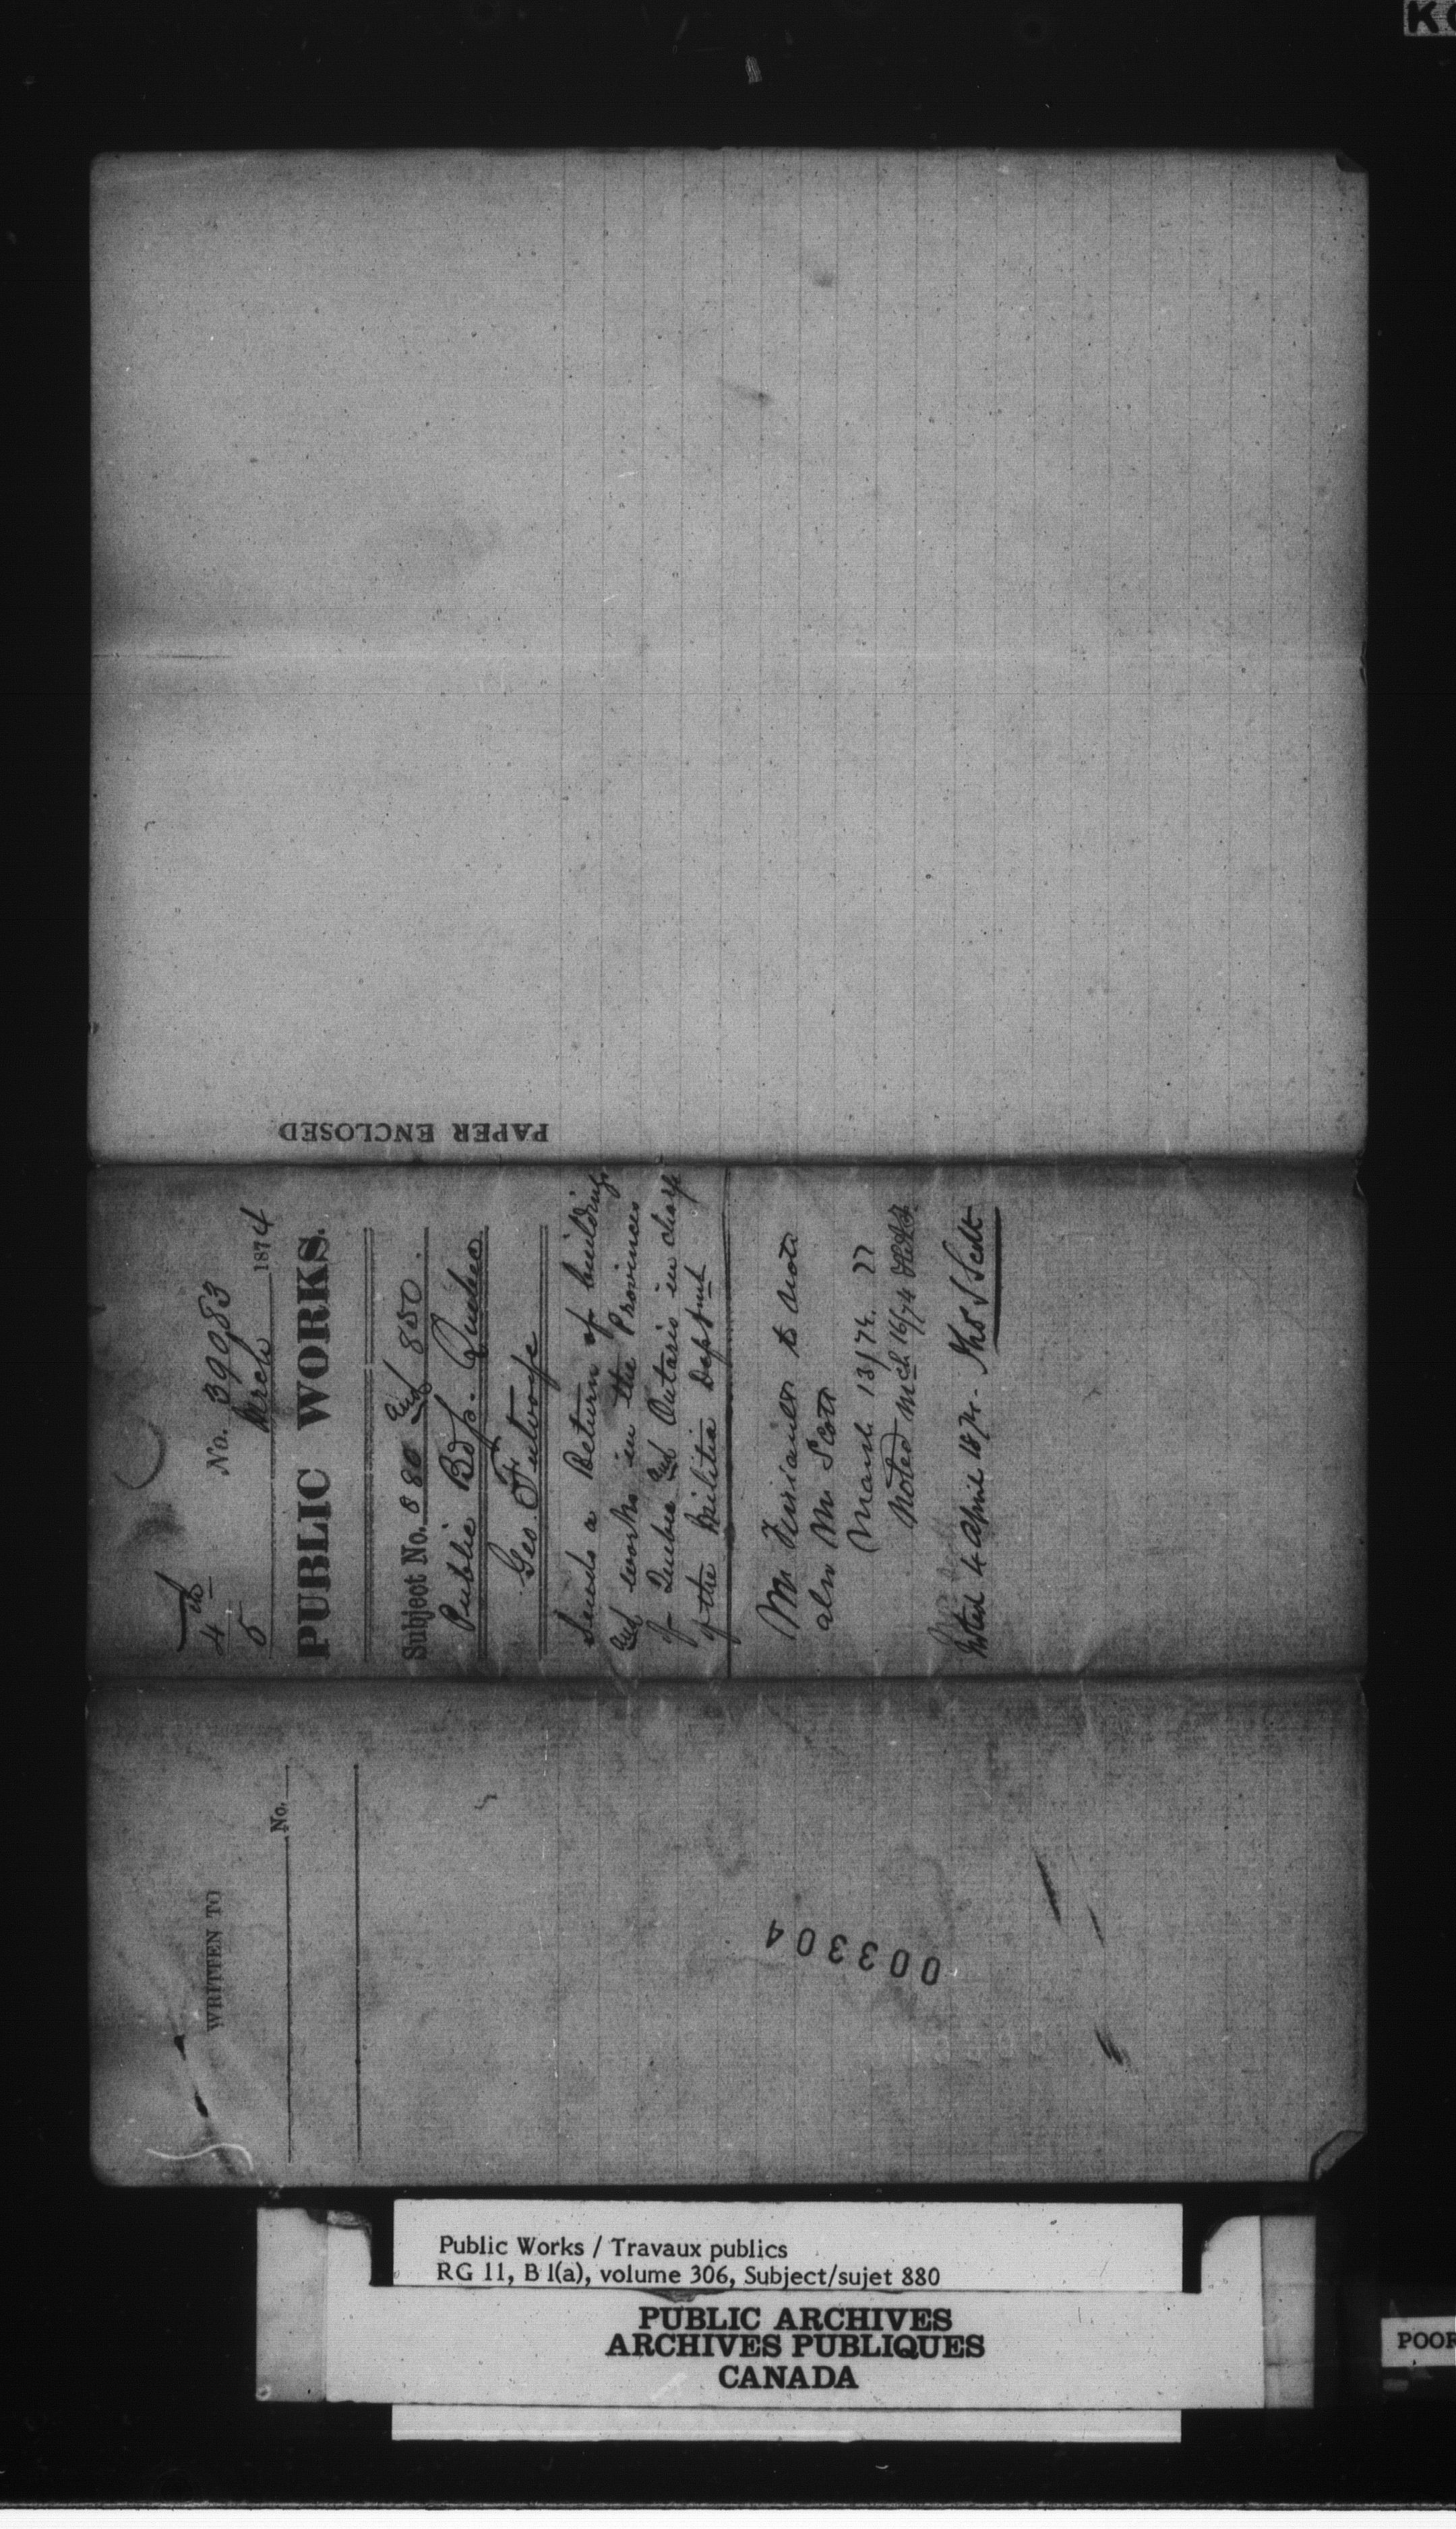 PAPER ENCLOSED
4th
5
No. 39983
March 1874
PUBLIC WORKS.
Subject No. 880 and 850.
Public Bdgs. Quebec
Geo. Futvoye
Sends a Return of buildings
and works in the Provinces
of Quebec and Ontario in charge
of the Militia Deptmnt
Mr to note
also Mr Scott
March 13/74.
Noted Mch 16/74
Noted 4 April 1874. Thos S Scott
WRITTEN TO
No.
003304
Public Works / Travaux publics
RG 11, B 1(a), volume 306, Subject/sujet 880
PUBLIC ARCHIVES
ARCHIVES PUBLIQUES
CANADA